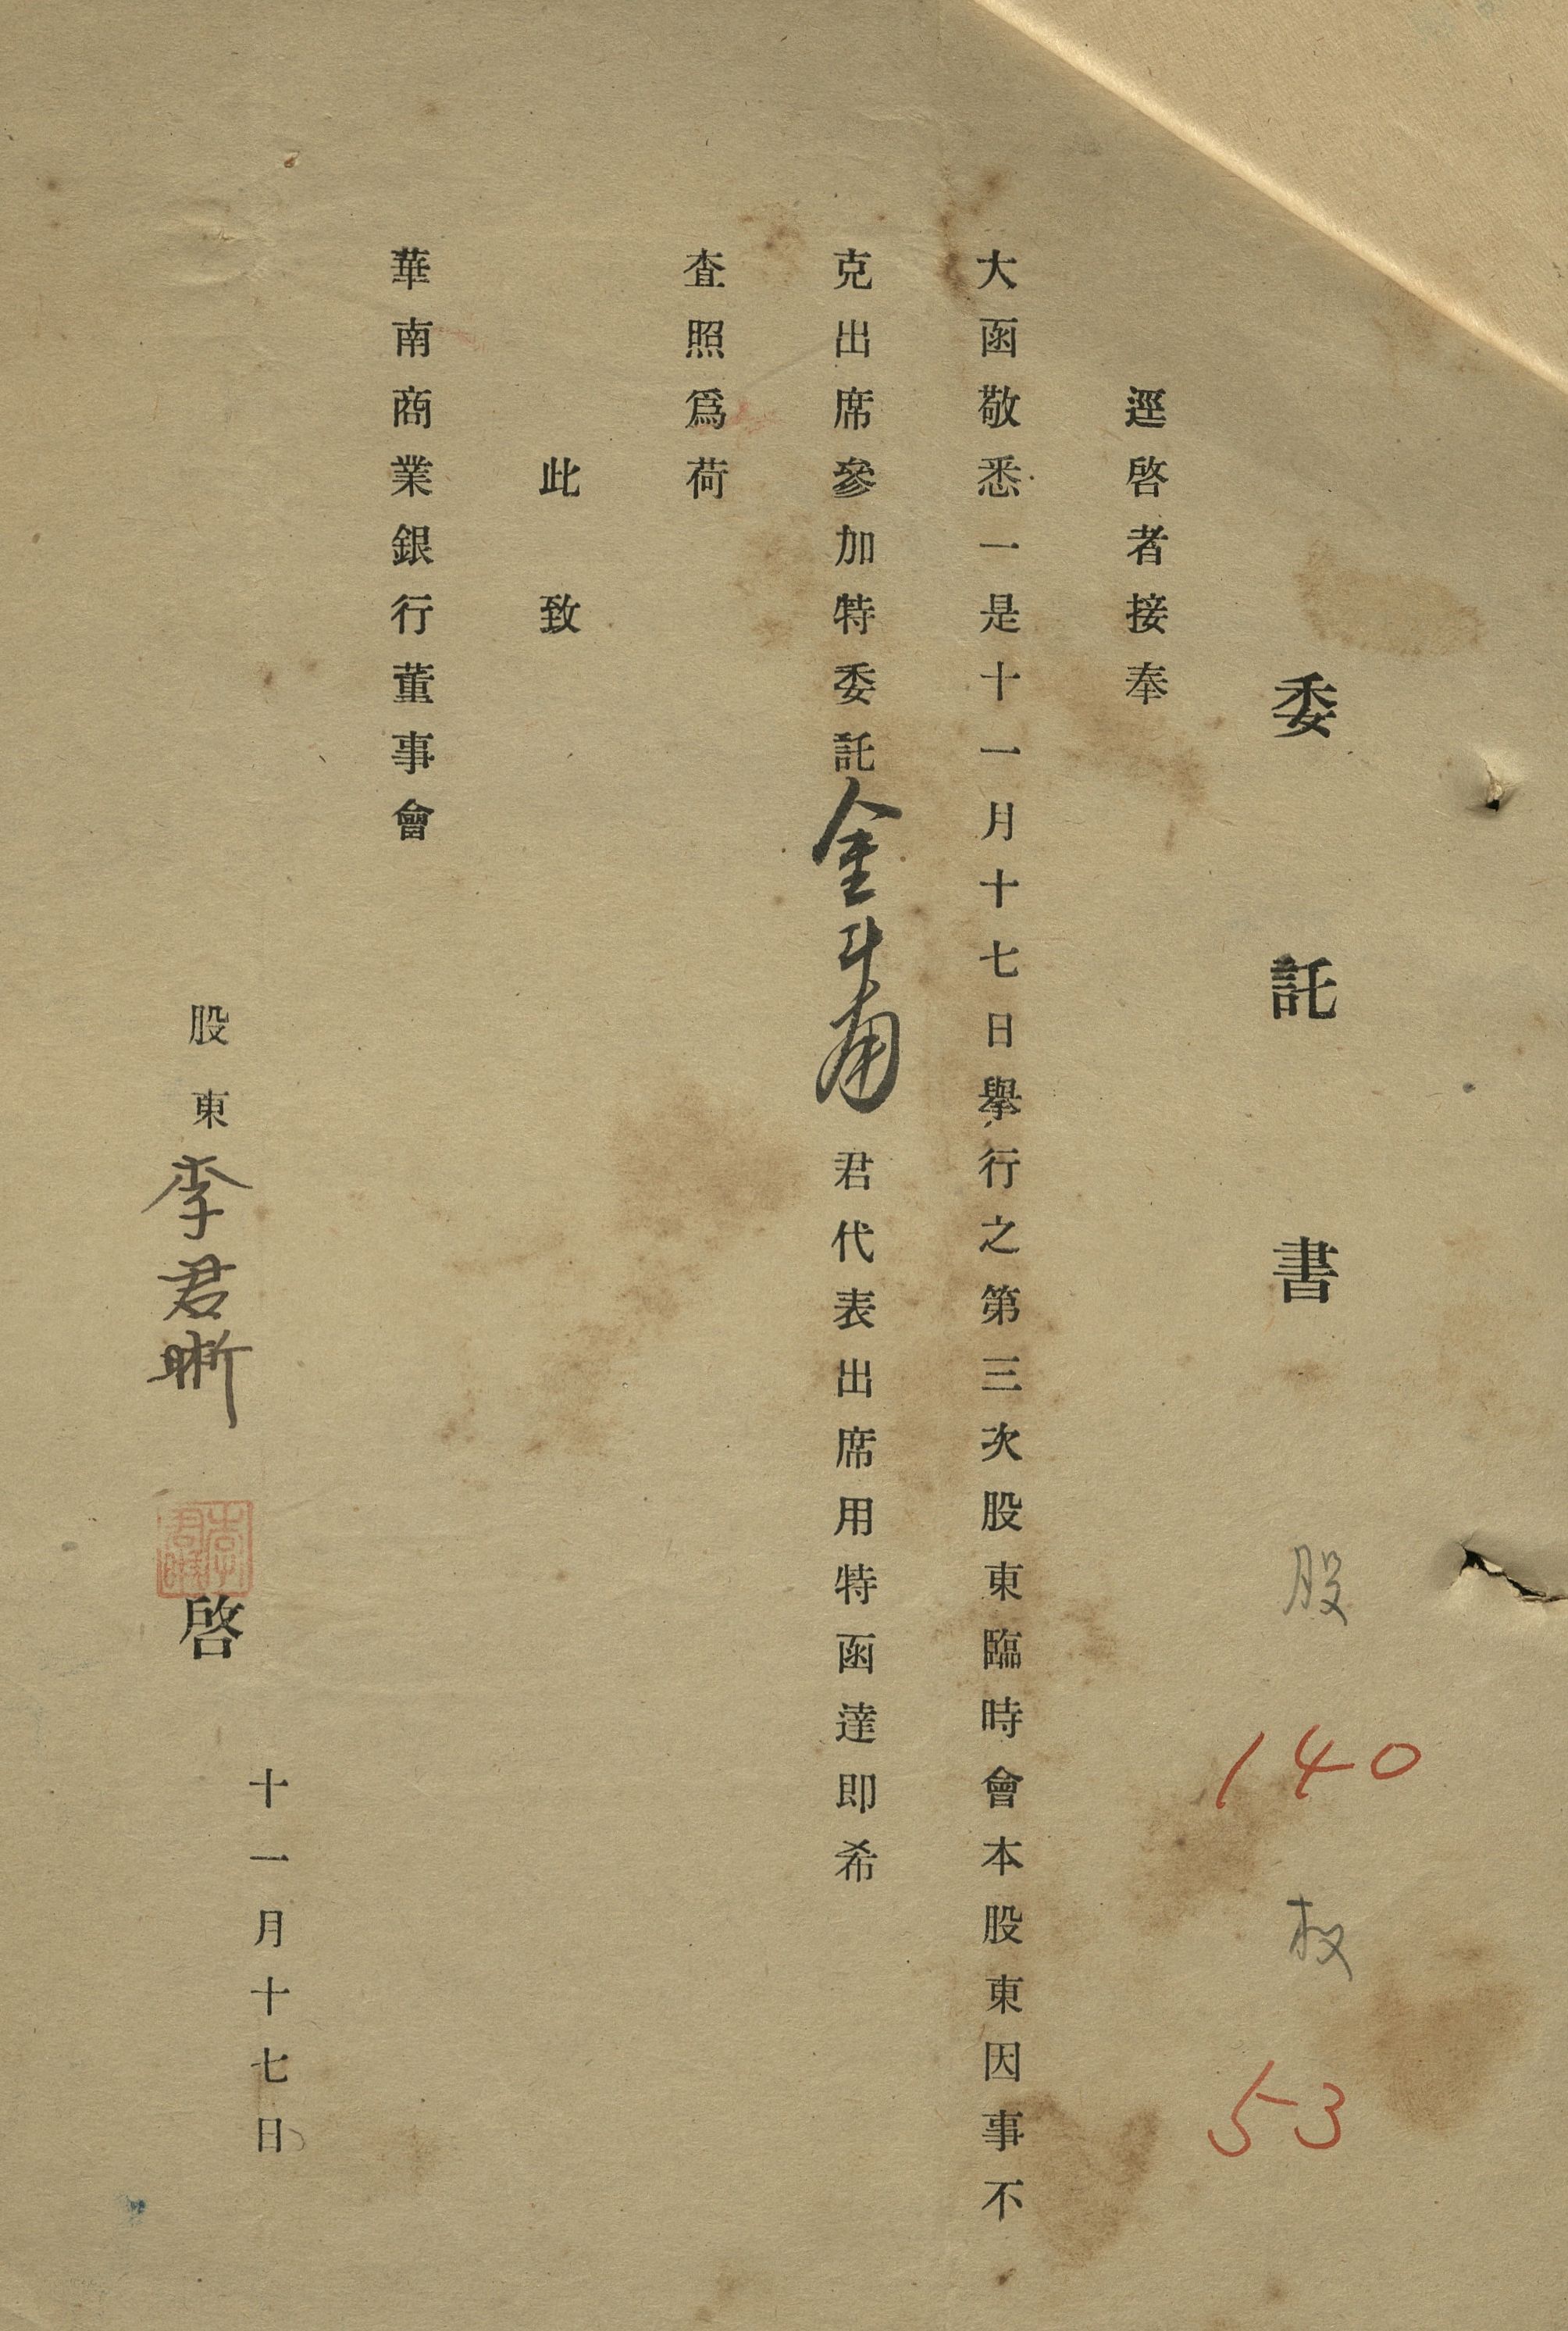 委託書
股 140 权 53
逕啓者接奉
大函敬悉一是十一月十七日舉行之第三次股東臨時會本股東因事不
克出席參加特委託金斗甫君代表出席用特函達即希
查照爲荷
此致
華南商業銀行董事會
股東李君晰
啓
十一月十七日